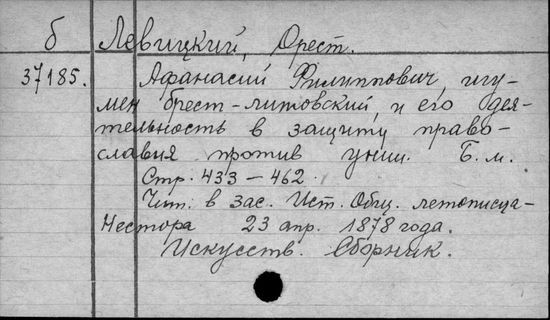 б Левицкий, Орест.
37185. Афанасий Филиппович, игу-
мен брест-литовский, и его дея-
тельность в защиту право-
славия против унии. Б.м.
Стр. 433-462.
Чит. в зас. Ист. Общ. летописца-
Нестора 23 апр. 1878 года.
Искусств. Сборник.